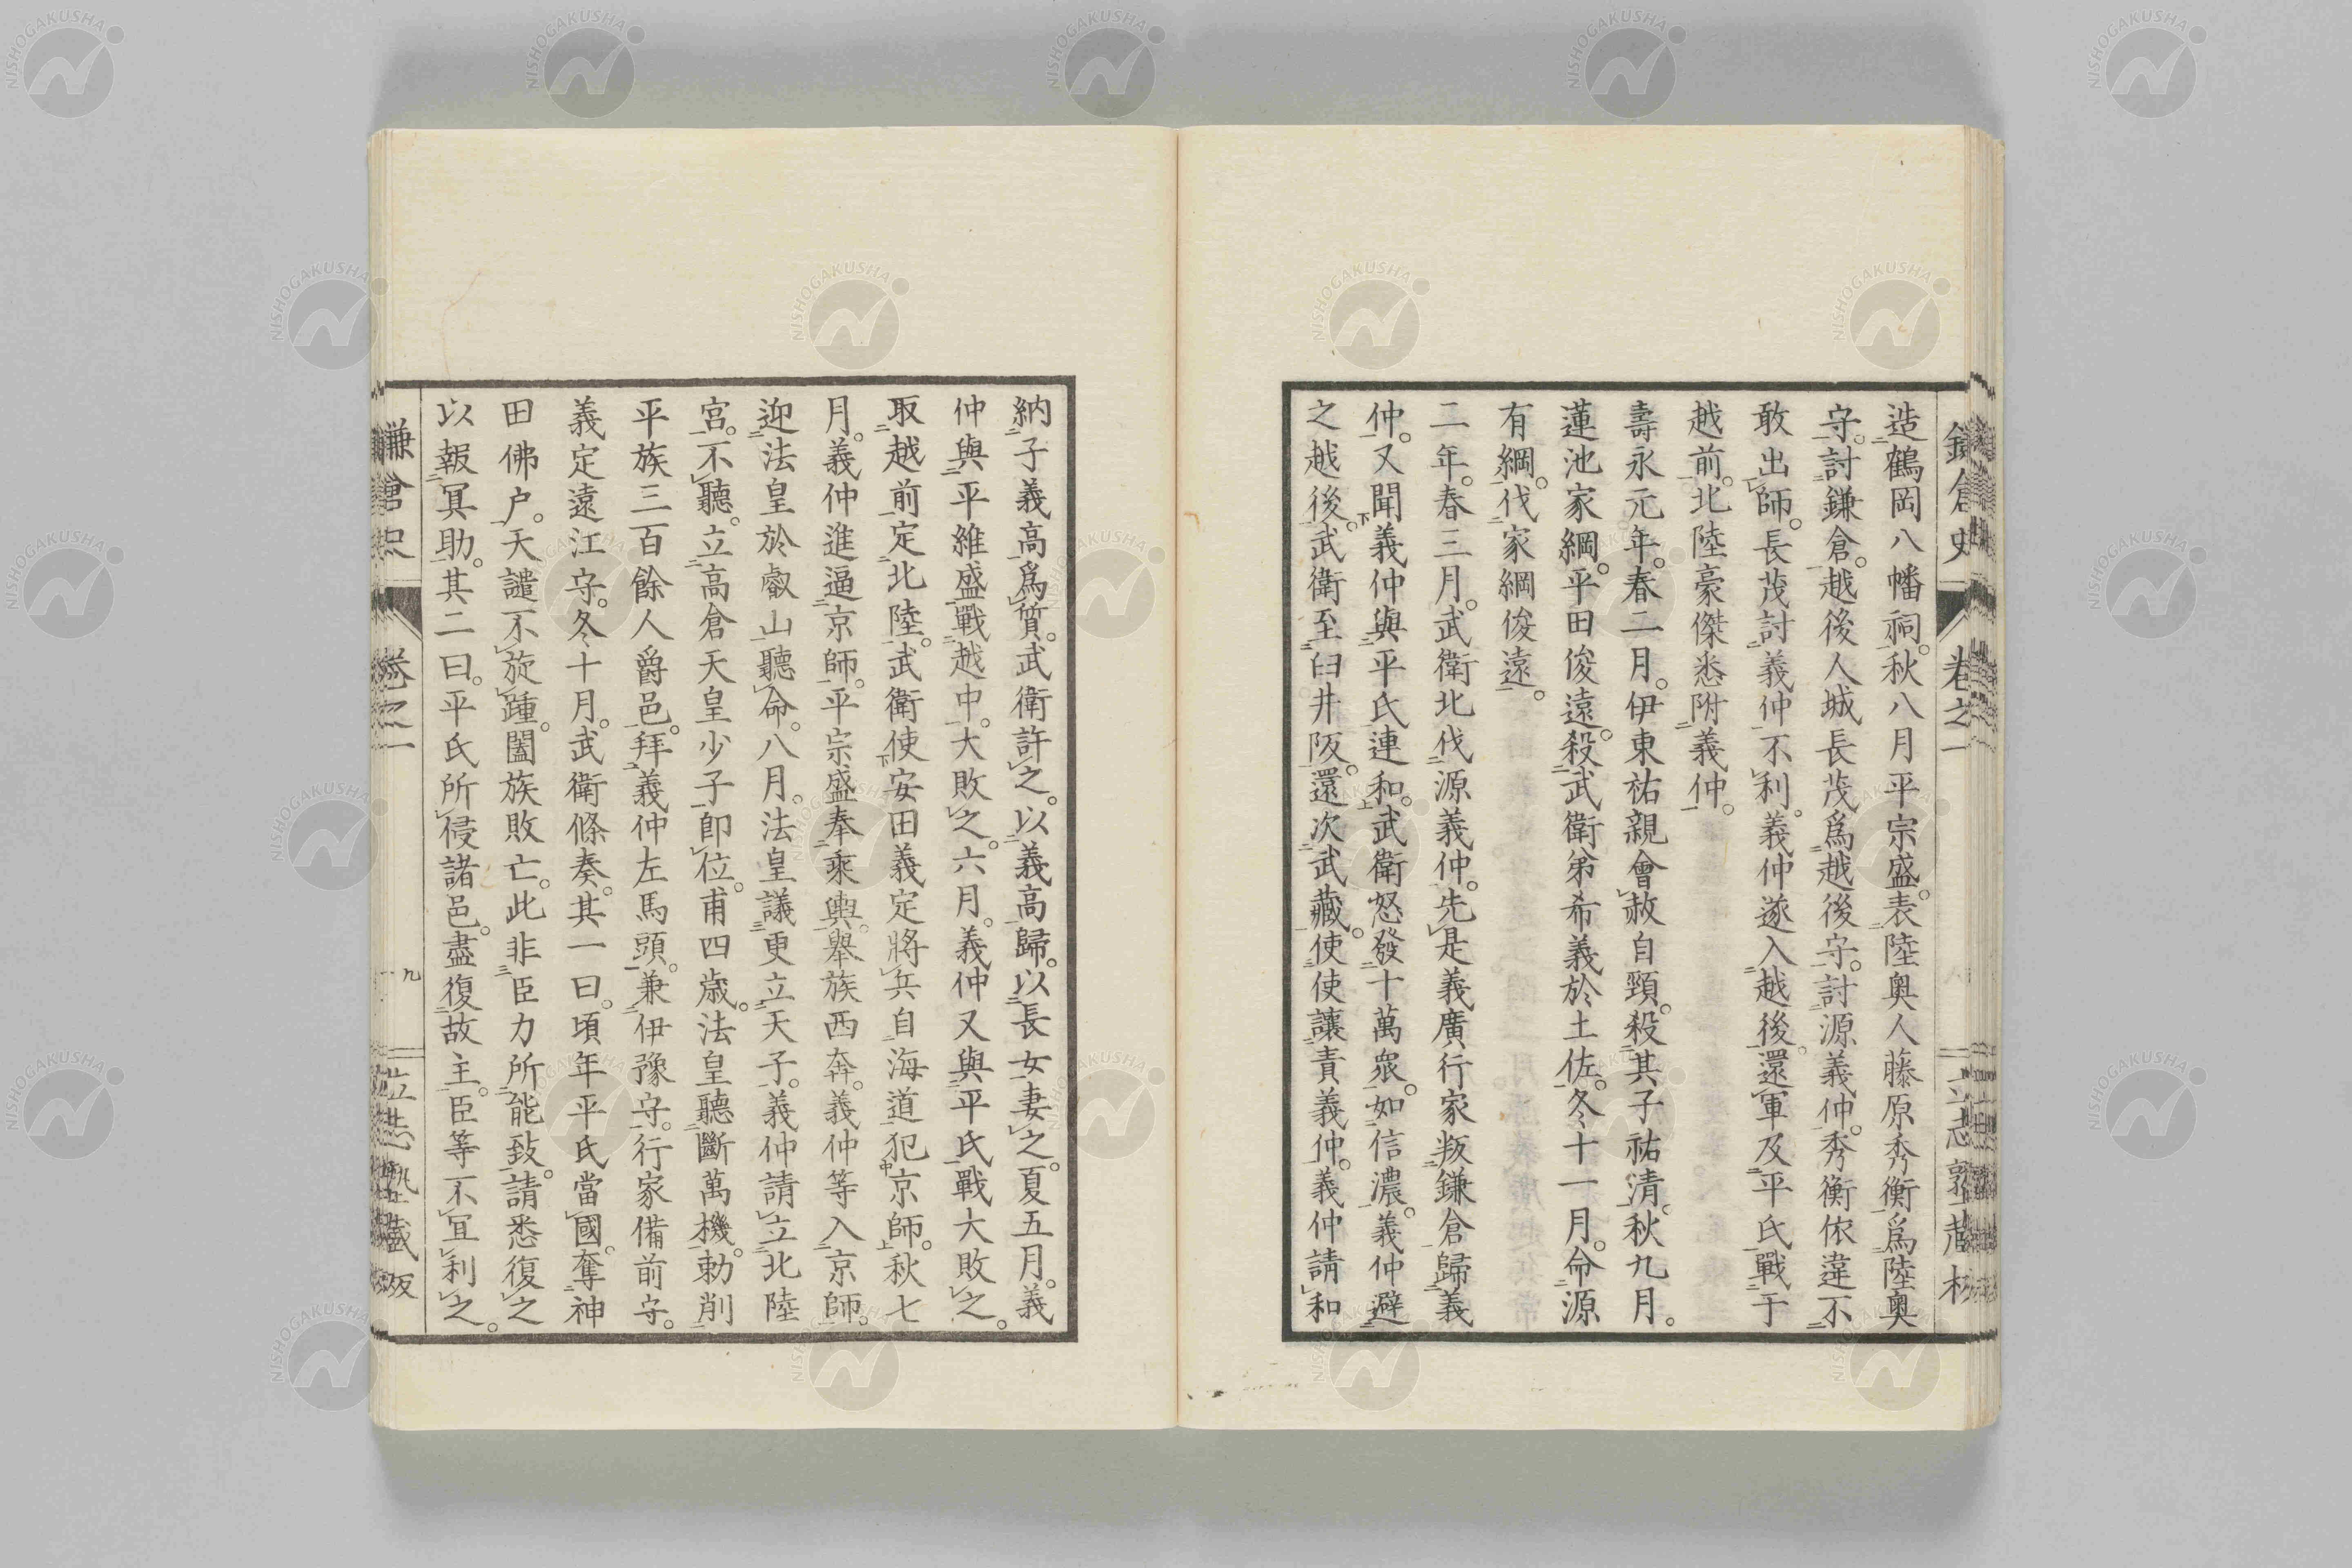 造鶴岡八幡祠。秋八月平宗盛。表陸奥人藤原秀衡爲陸奥
守。討鎌倉。越後人城長茂爲越後守。討源義仲。秀衡依違不
敢出師。長茂討義仲不利。義仲遂入越後。還軍及平氏戰于
越前。北陸豪傑悉附義仲。
壽永元年。春二月。伊東祐親會赦自頸。殺其子祐清。秋九月。
蓮池家綱。平田俊遠。殺武衛弟希義於土佐。冬十一月。命源
有綱。伐家綱俊遠。
二年。春三月。武衛北伐源義仲。先是義廣行家叛鎌倉歸義
仲。又聞義仲與平氏連和。武衛怒發十萬衆。如信濃。義仲避
之越後。武衛至臼井阪。還次武藏。使使讓責義仲。義仲請和
納子義高爲質。武衛許之。以義高歸。以長女妻之。夏五月。義
仲與平維盛戰越中。大敗之。六月。義仲又與平氏戰大敗之。
取越前。定北陸。武衛使安田義定將兵自海道犯京師。秋七
月。義仲進逼京師。平宗盛奉乘輿。舉族西奔。義仲等入京師。
迎法皇於叡山聽命。八月。法皇議更立天子。義仲請立北陸
宮。不聽。立高倉天皇少子即位。甫四歳。法皇聽斷萬機。勅削
平族三百餘人爵邑。拜義仲左馬頭。兼伊豫守。行家備前守。
義定遠江守。冬十月。武衛條奏。其一曰。頃年平氏當國。奪神
田佛戸。天譴不旋踵。闔族敗亡。此非臣力所能致。請悉復之
以報冥助。其二曰。平氏所侵諸邑。盡復故主。臣等不宜利之。
鎌倉史
卷之一
九